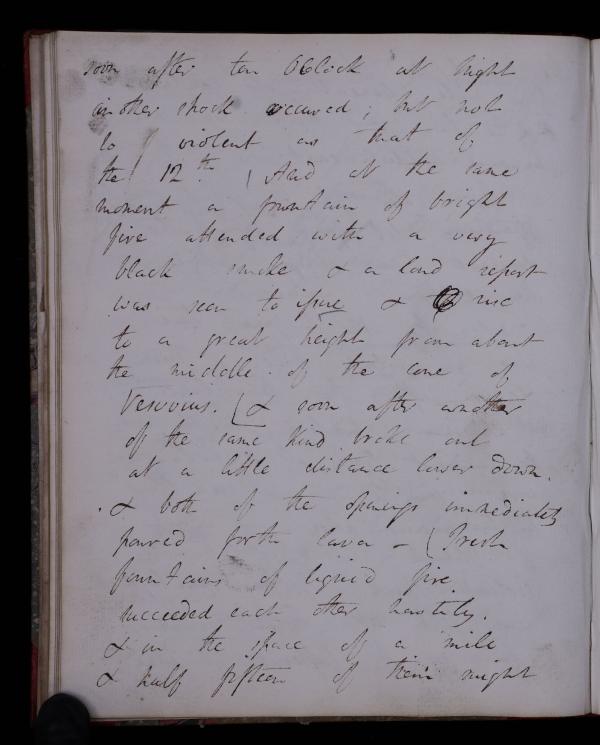 soon after ten OClock at night
another shock occured; but not
so violent as that of
the 12th ( And at the same
moment a fountain of bright
fire attended with a very
black smoke & a loud report
was seen to issue & rise
to a great height from about
the middle of the cone of
Vesuvius. (& soon after another
of the same kind broke out
at a little distance lower down.
& both of the openings immediately
poured forth lava - (Fresh
fountains of liquid fire
succeeded each other hastily.
& in the space of a mile
& half fifteen of them might